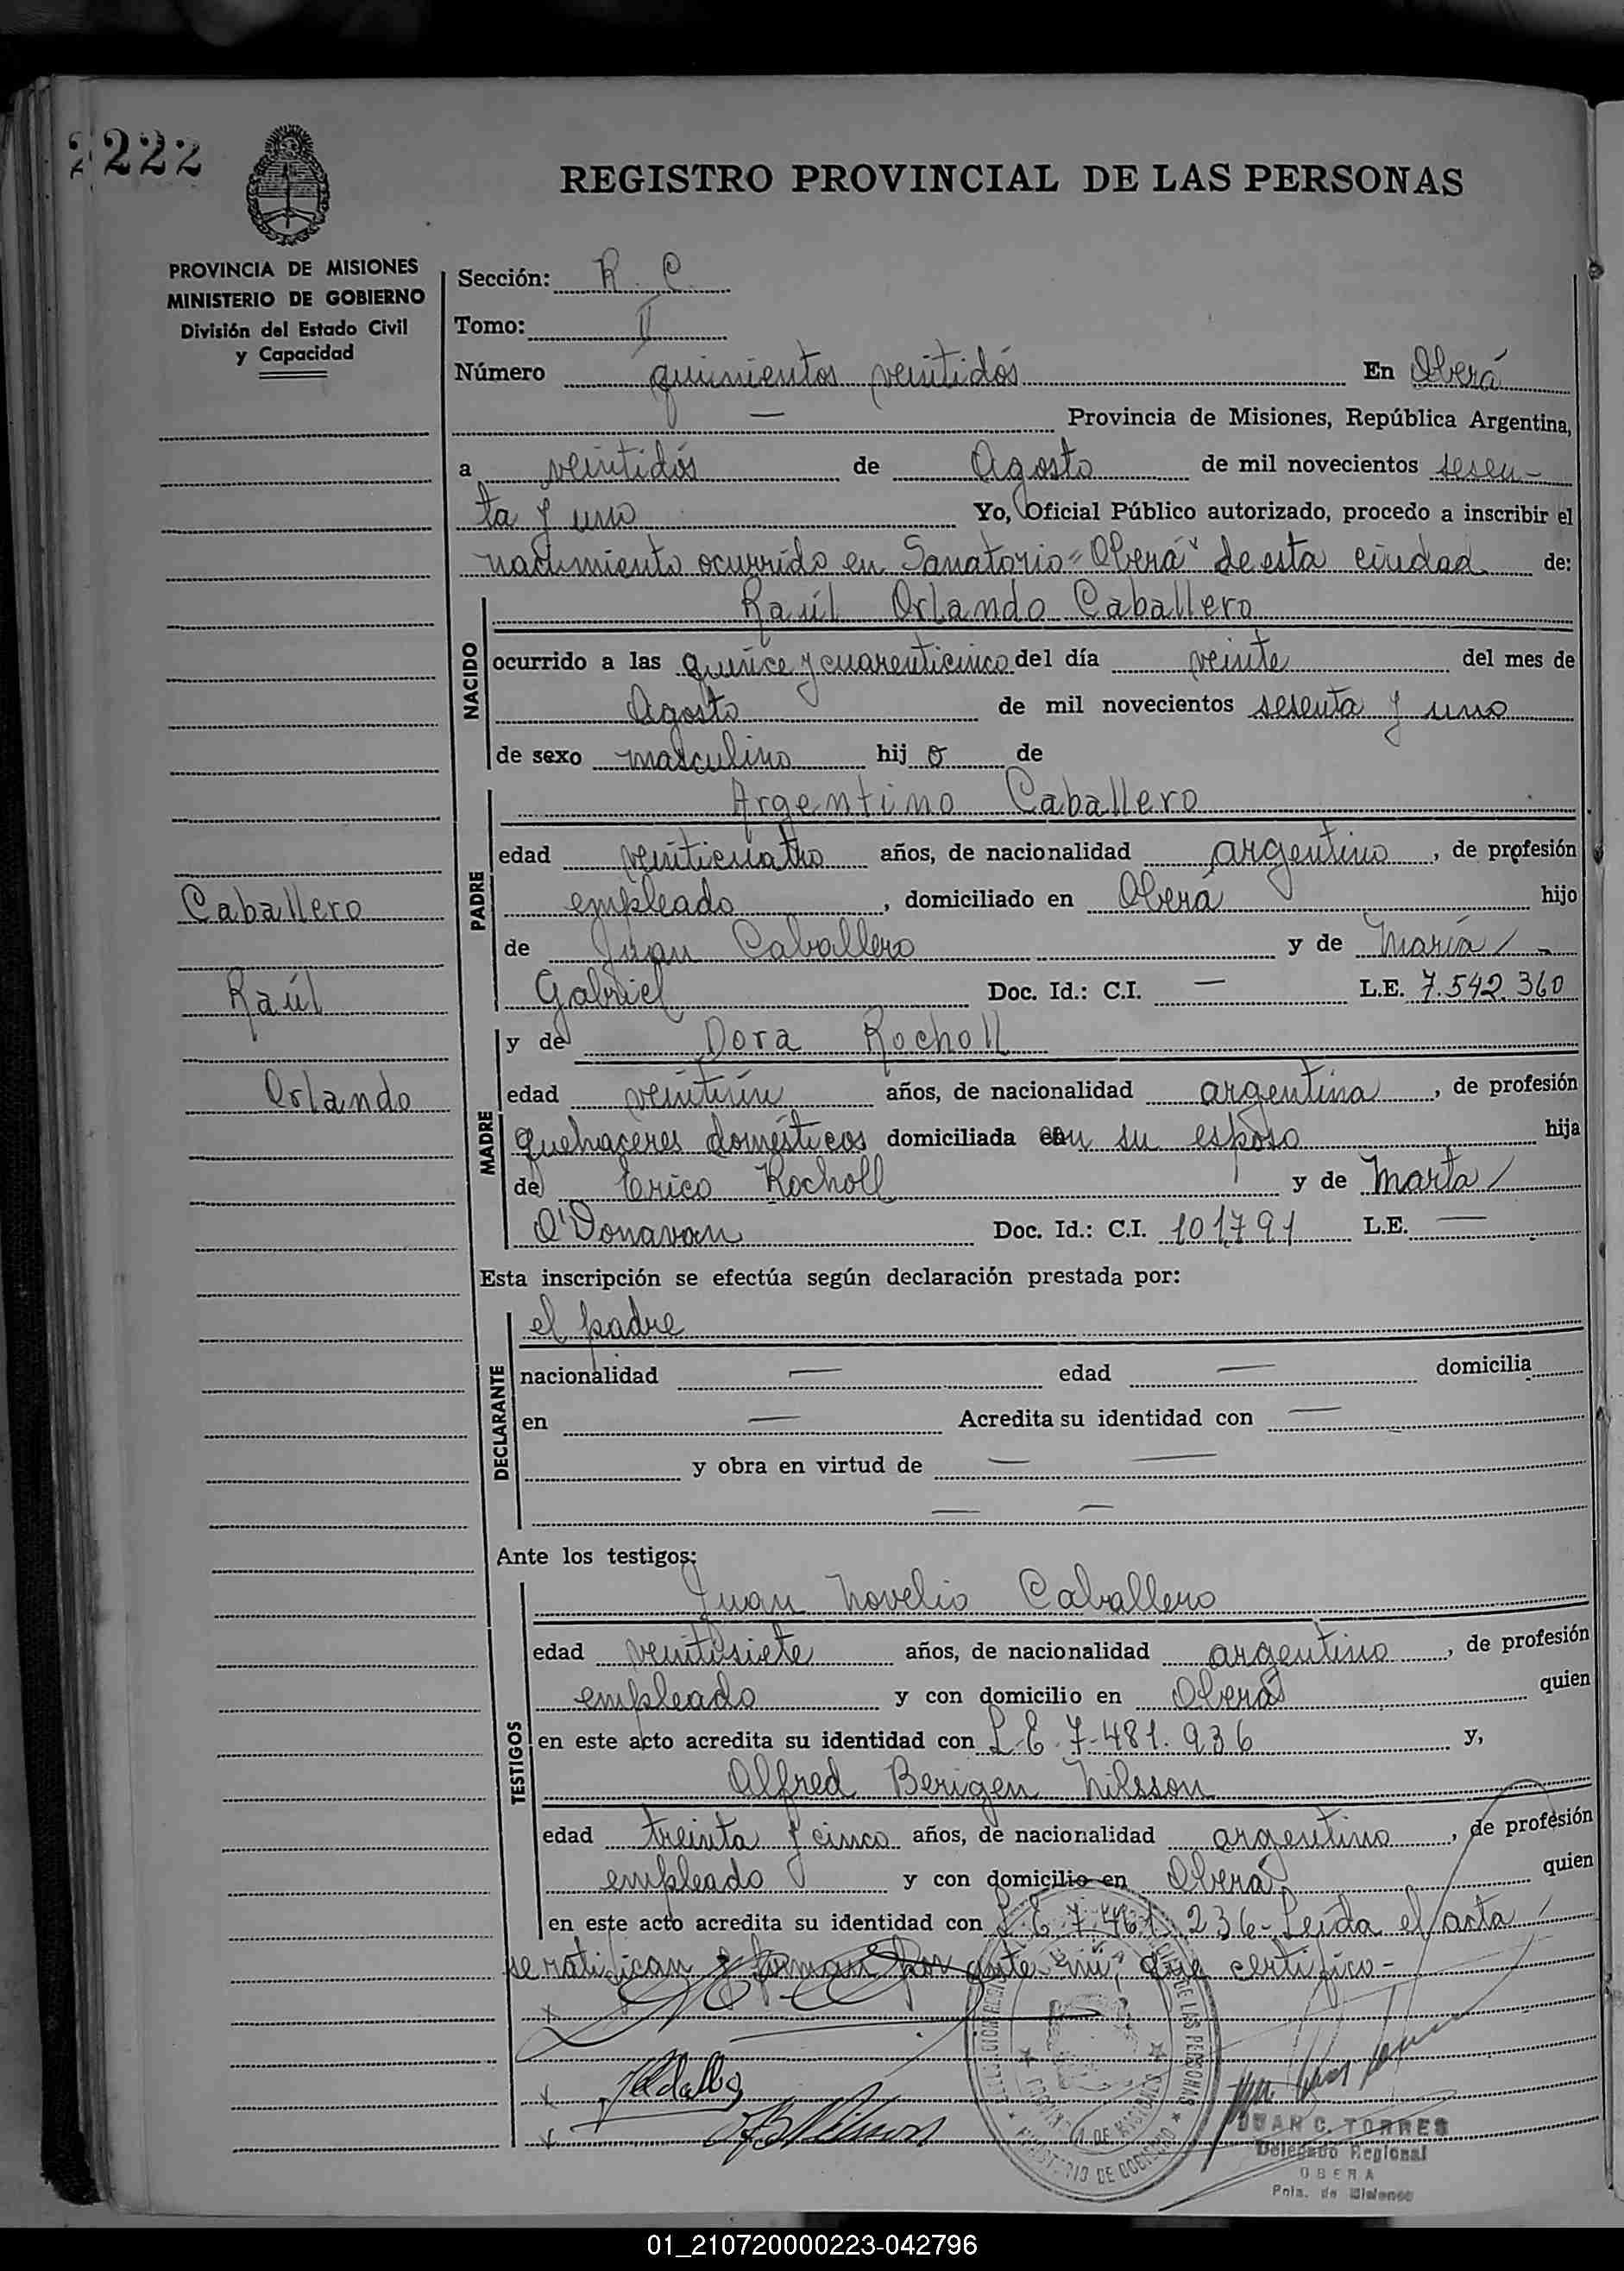 222
REGISTRO PROVINCIAL DE LAS PERSONAS
PROVINCIA DE MISIONES
MINISTERIO DE GOBIERNO
División del Estado Civil
y Capacidad
Sección: R. C.
Tomo: II
Número quinientos veintidós En Oberá
— Provincia de Misiones, República Argentina,
a veintidós de Agosto de mil novecientos sesen-
ta y uno Yo, Oficial Público autorizado, procedo a inscribir el
nacimiento ocurrido en Sanatorio "Oberá" de esta ciudad de:
NACIDO
Raúl Orlando Caballero
ocurrido a las quince y cuarenticinco del día veinte del mes de
Agosto de mil novecientos sesenta y uno
de sexo masculino hij o de
PADRE
Argentino Caballero
edad veinticuatro años, de nacionalidad argentino, de profesión
empleado, domiciliado en Oberá hijo
de Juan Caballero y de María /
Gabriel Doc. Id.: C.I. — L.E. 7.542.360
Caballero
Raúl
Orlando
MADRE
y de Dora Rocholl
edad veintiún años, de nacionalidad argentina, de profesión
quehaceres domésticos domiciliada con su esposo hija
de Erico Rocholl y de Marta /
O'Donavan Doc. Id.: C.I. 101791 L.E. —
Esta inscripción se efectúa según declaración prestada por:
DECLARANTE
el padre
nacionalidad — edad — domicilia
en — Acredita su identidad con —
y obra en virtud de — —
— —
Ante los testigos:
TESTIGOS
Juan Novelio Caballero
edad veintisiete años, de nacionalidad argentino, de profesión
empleado y con domicilio en Oberá quien
en este acto acredita su identidad con L.E. 7.481.936 y,
Alfred Berigen Nilsson
edad treinta y cinco años, de nacionalidad argentino, de profesión
empleado y con domicilio en Oberá quien
en este acto acredita su identidad con L.E. 7.461.236- Leída el acta
se ratifican y firman por ante mí, que certifico-
JUAN C. TORRES
Delegado Regional
OBERA
Pcia. de Misiones
DE LAS PERSONAS
MINISTERIO DE GOBIERNO
01_210720000223-042796